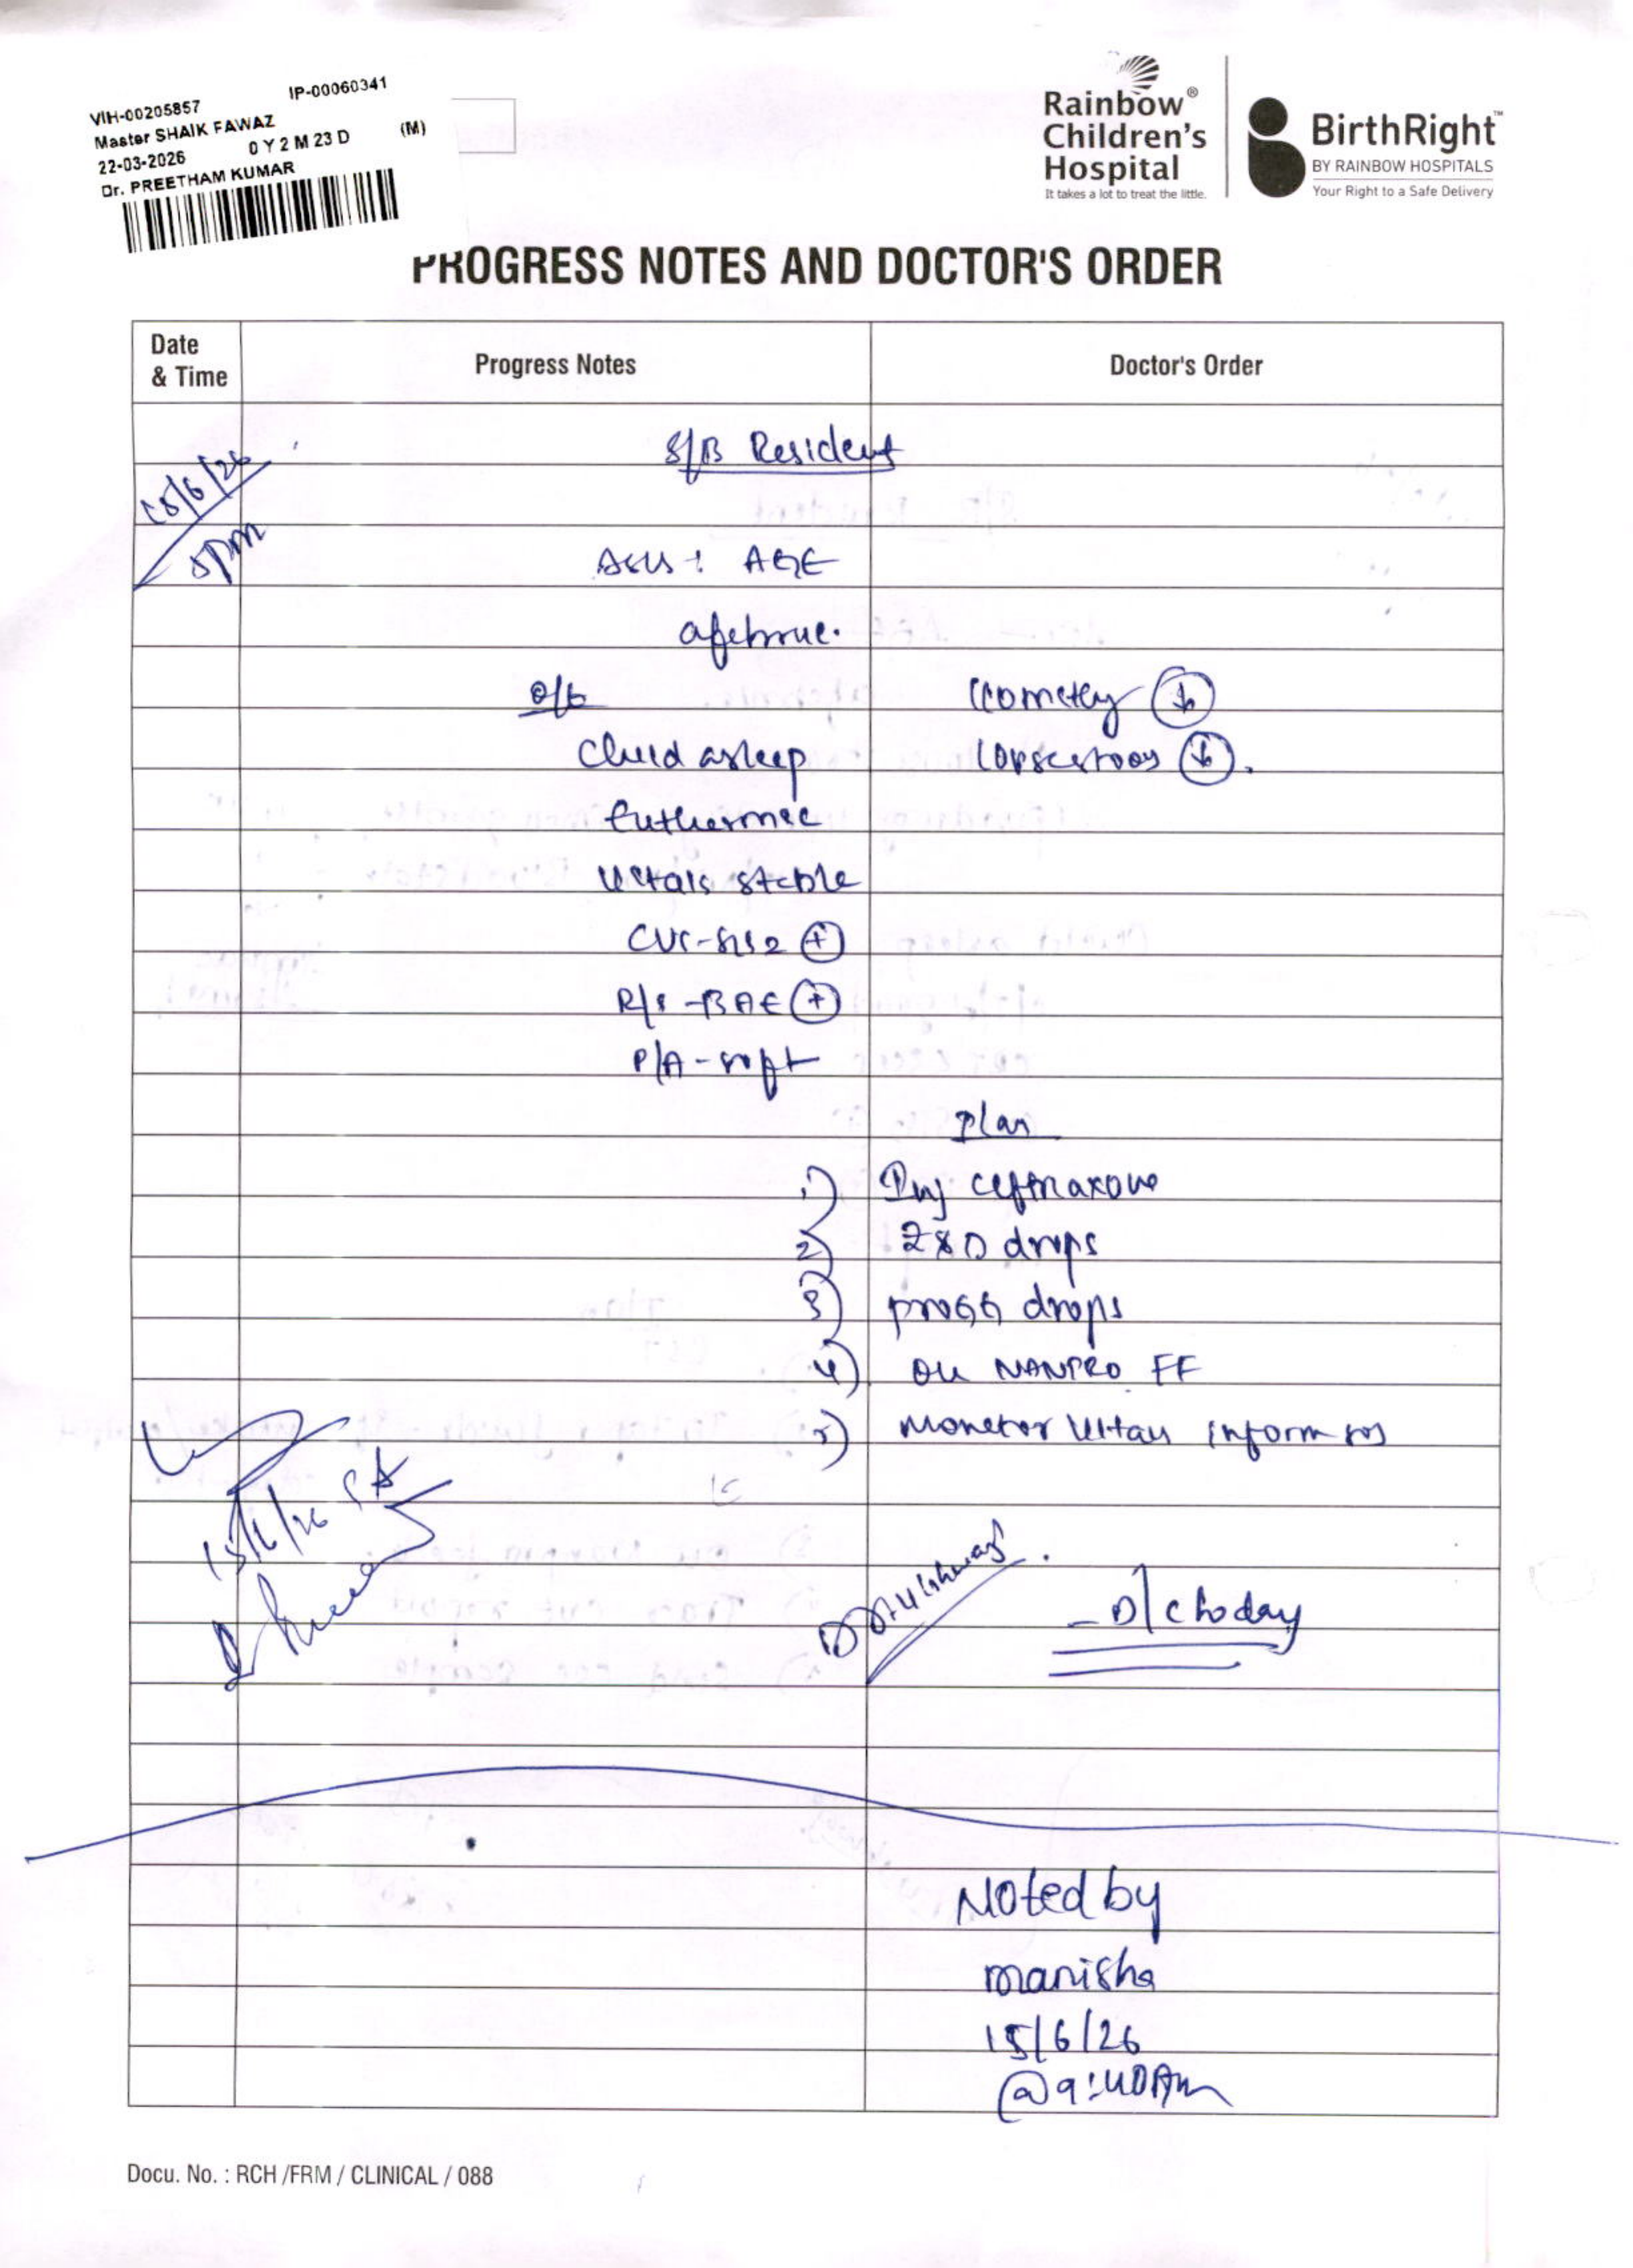 VIH-00205857 IP-00060341
Master SHAIK FAWAZ
22-03-2026 0 Y 2 M 23 D (M)
Dr. PREETHAM KUMAR
Rainbow®
Children's
Hospital
It takes a lot to treat the little.
BirthRight™
BY RAINBOW HOSPITALS
Your Right to a Safe Delivery
PROGRESS NOTES AND DOCTOR'S ORDER
Date & Time
Progress Notes
Doctor's Order
S/B Resident
15/6/26
5pm
AGE
afebrile.
O/E
Vomiting ↓
Child asleep
Loose stools ↓.
Euthermic
Vitals stable
CVS-S1S2 (+)
R/S-BAE (+)
P/A-soft
Plan
1) Inj ceftriaxone
2) Z&D drops
3) progg drops
4) NANPRO FF
5) Monitor Vitals inform sos
15/6/26
D/c today
Noted by
manisha
15/6/26
@9:40Am
Docu. No. : RCH /FRM / CLINICAL / 088